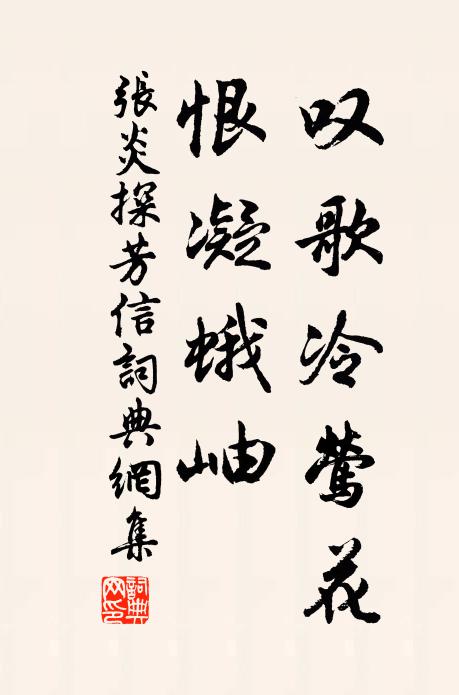 叹歌冷莺花
恨凝蛾岫
張炎探芳信詞典網集
詞典网印